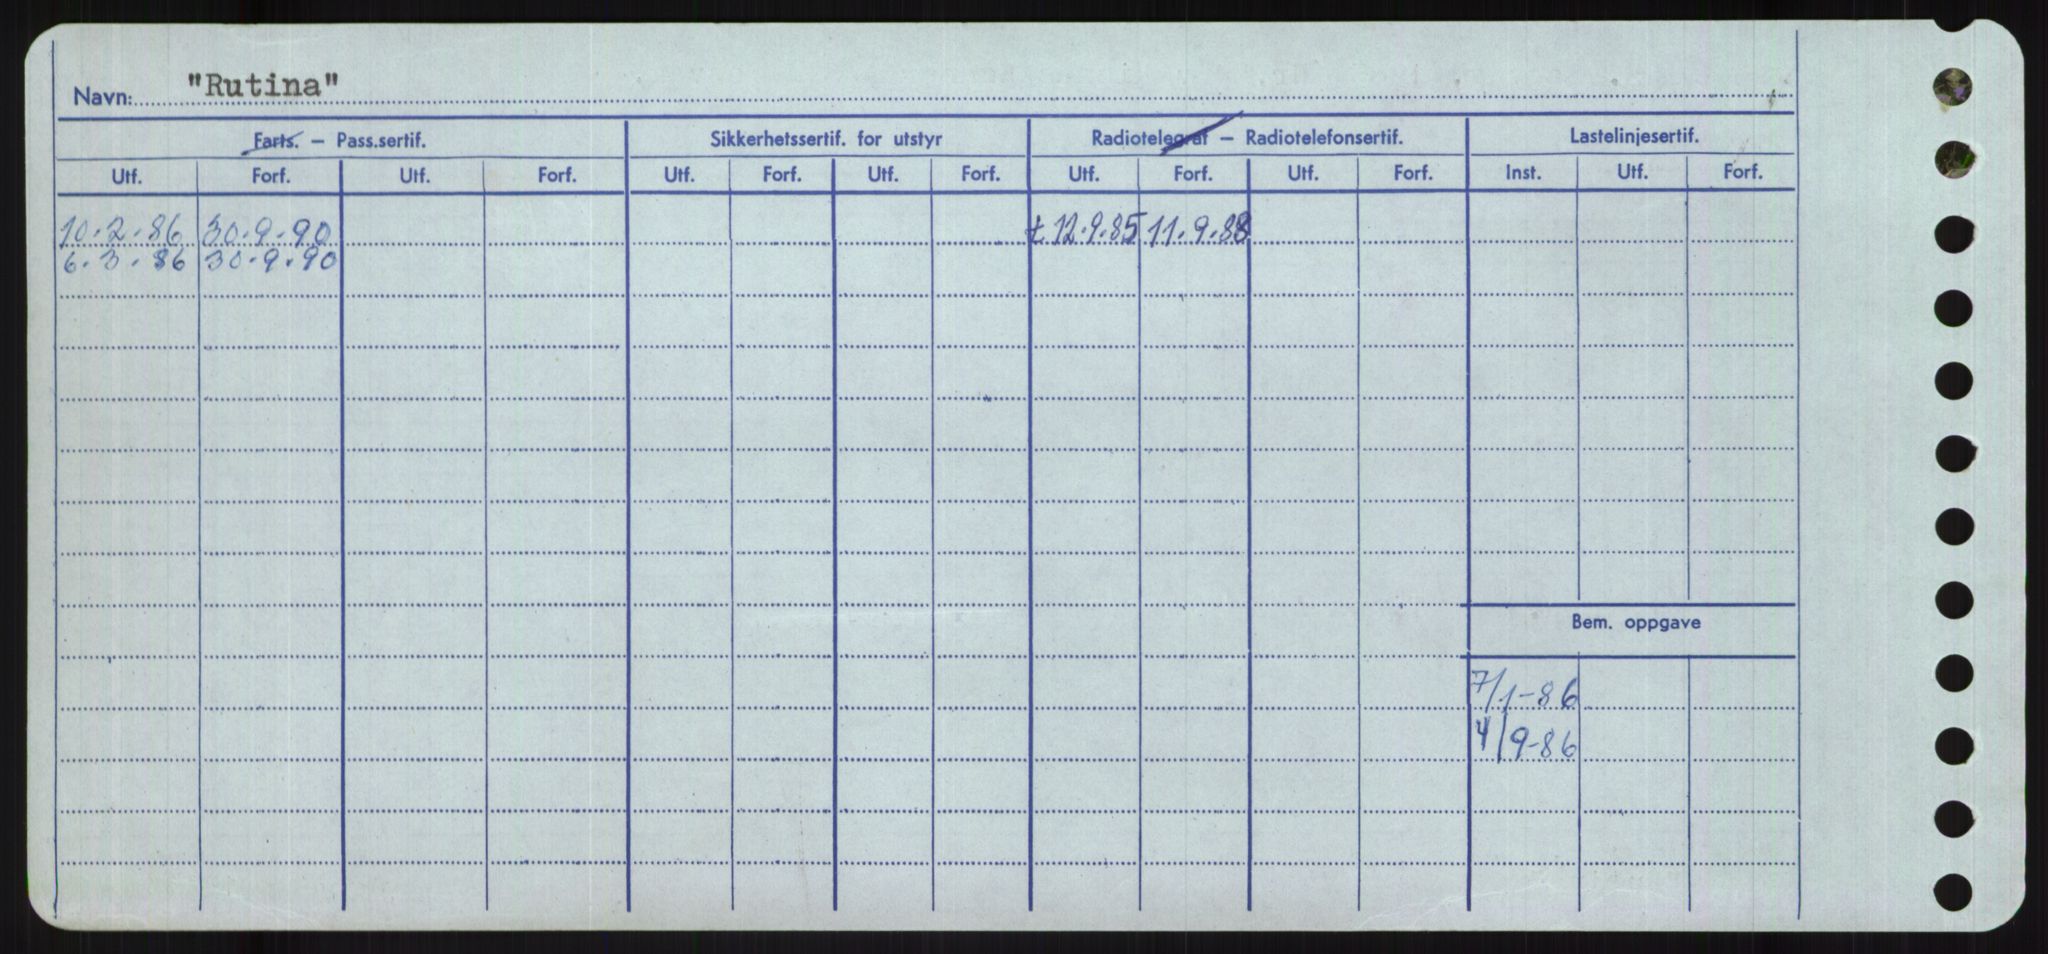 Navn: "Rutina"
Farts. – Pass.sertif. Sikkerhetssertif. for utstyr Radiotelegraf – Radiotelefonsertif. Lastelinjesertif.
Utf. Forf. Utf. Forf. Utf. Forf. Utf. Forf. Utf. Forf. Utf. Forf. Inst. Utf. Forf.
10.2.86 30.9.90 t 12.9.85 11.9.88
6.3.86 30.9.90
Bem. oppgave
7/1-86
4/9-86